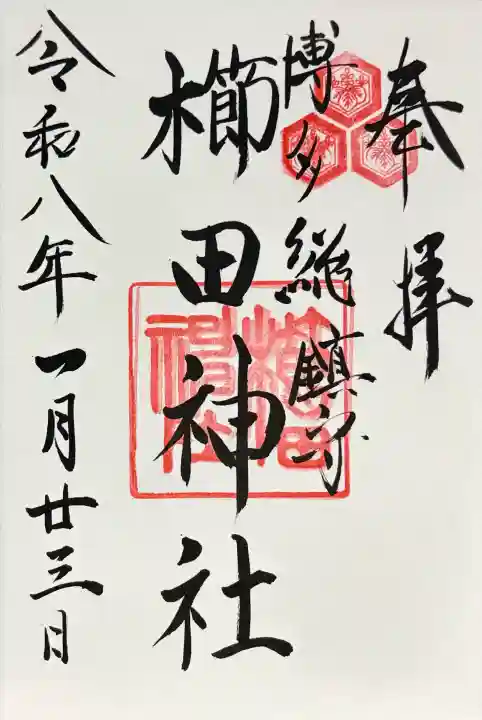 奉拝
博多総鎮守
櫛田神社
令和八年一月廿三日